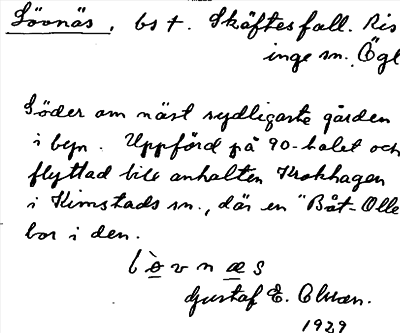 Lövnäs, bst. Skäftesfall. Ris
inge sn. Ögl
Söder om näst sydligaste gården
i byn. Uppförd på 90-talet och
flyttad till anhalten Krokhagen
i Kimstads sn., där en "Båt-Olle
bor i den.
lòvnæs
Gustaf E. Olsson.
1929